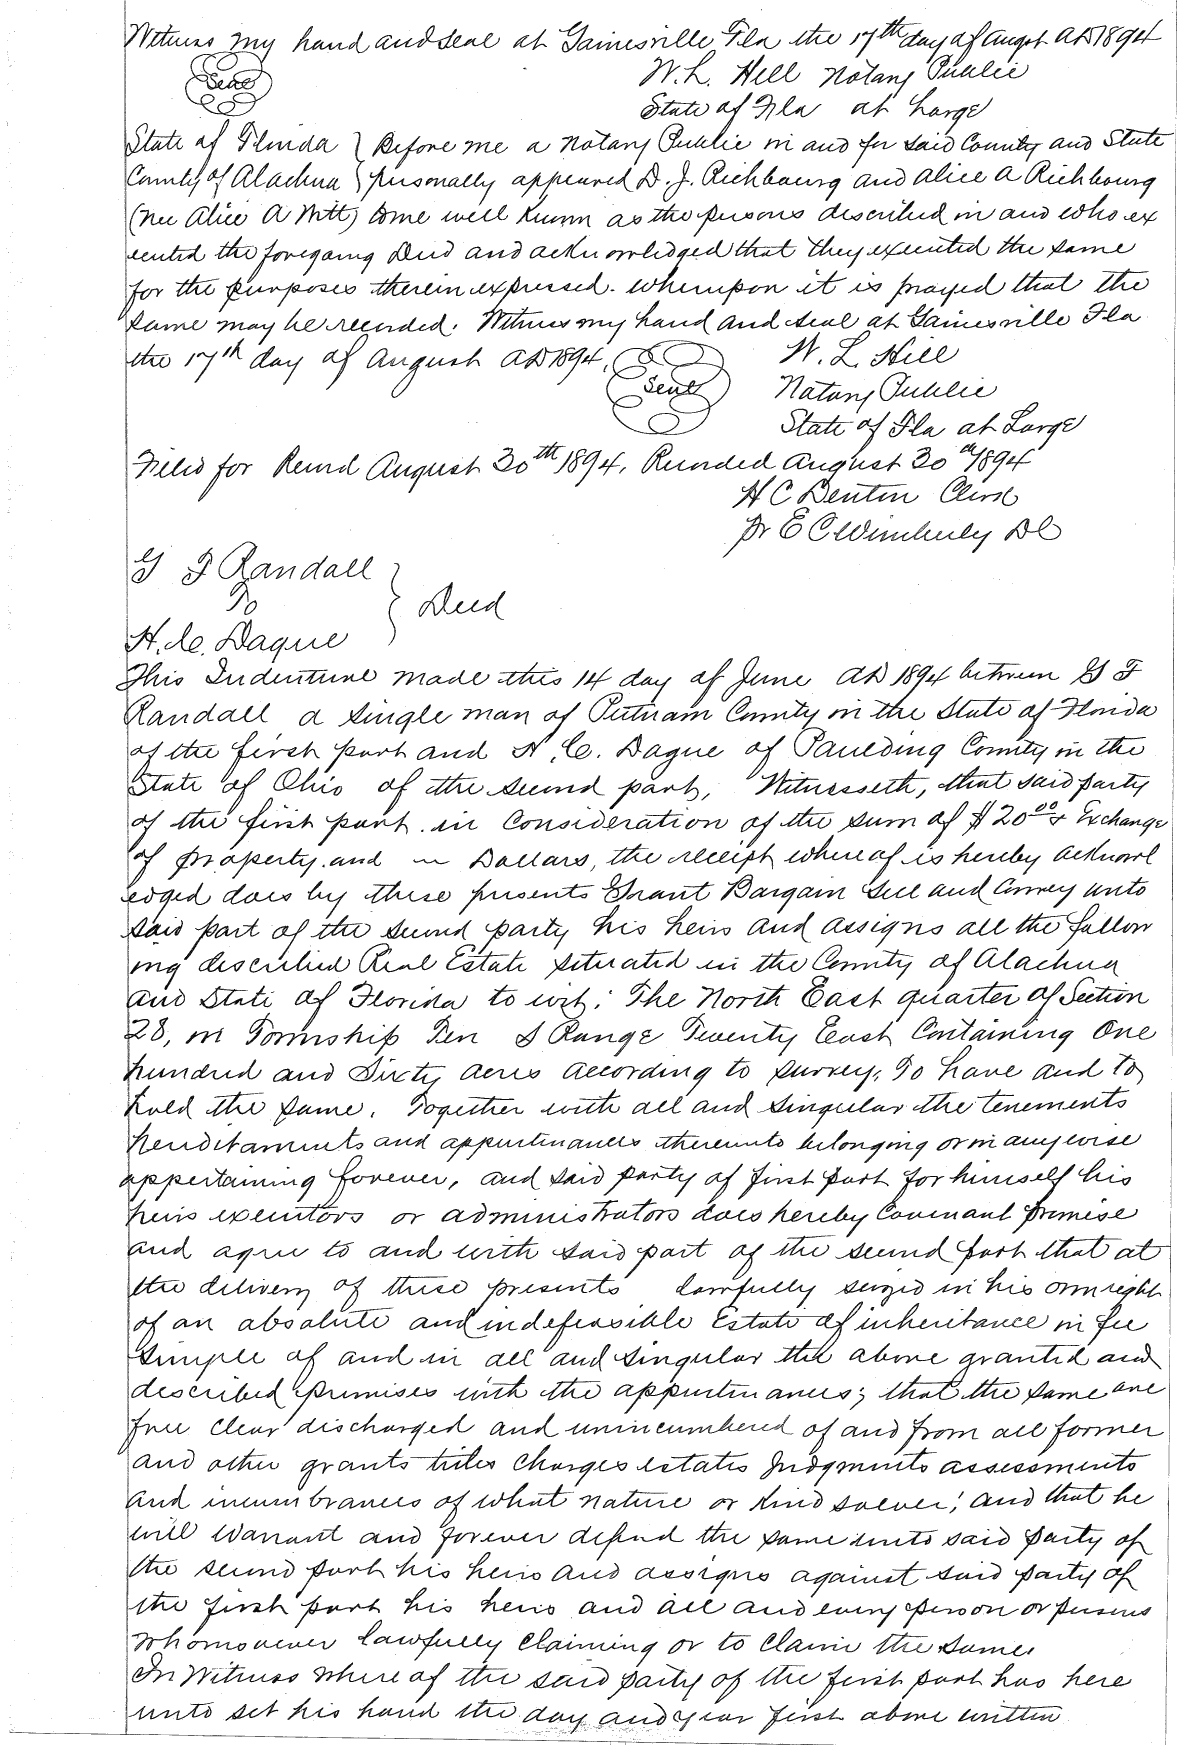 Witness my hand and seal at Gainesville Fla the 17th day of Augst AD 1894
Seal
W. L. Hill Notary Public
State of Fla at Large
State of Florida } Before me a Notary Public in and for said County and State
County of Alachua } personally appeared D. J. Richbourg and Alice A Richbourg
(nee Alice A Witt) to me well known as the persons described in and who ex
ecuted the foregoing Deed and acknowledged that they executed the same
for the purposes therein expressed. whereupon it is prayed that the
same may be recorded. Witness my hand and seal at Gainesville Fla
the 17th day of August AD 1894.
Seal
W. L. Hill
Notary Public
State of Fla at Large
Filed for Record August 30th 1894. Recorded August 30th 1894
H C Denton Clerk
Pr E C Wimberly DC
G F Randall
To } Deed
H. C. Dague
This Indenture made this 14 day of June AD 1894 between G F
Randall a single man of Putnam County in the State of Florida
of the first part and H. C. Dague of Paulding County in the
State of Ohio of the second part, Witnesseth, that said party
of the first part. in consideration of the sum of $20.00 & Exchange
of property. and Dollars, the receipt whereof is hereby acknowl
edged does by these presents Grant Bargain Sell and Convey unto
said part of the second party his heirs and assigns all the follow
ing described Real Estate situated in the County of Alachua
and State of Florida to wit: The North East quarter of Section
28, in Township Ten S Range Twenty East Containing One
hundred and Sixty acres according to survey. To have and to
hold the same. Together with all and singular the tenements
hereditaments and appurtinances thereunto belonging or in anywise
appertaining forever, and said party of first part for himself his
heirs executors or administrators does hereby Covenant promise
and agree to and with said part of the second part that at
the delivery of these presents lawfully seized in his own right
of an absolute and indefeasible Estate of inheritance in fee
simple of and in all and singular the above granted and
described premises with the appurtinances; that the same are
free clear discharged and unincumbered of and from all former
and other grants titles charges estates Judgments assessments
and incumbrances of what nature or kind soever; and that he
will warrant and forever defend the same unto said party of
the second part his heirs and assigns against said party of
the first part his heirs and all and every person or persons
whomsoever lawfully claiming or to claim the same.
In Witness Whereof the said party of the first part has here
unto set his hand the day and year first above written